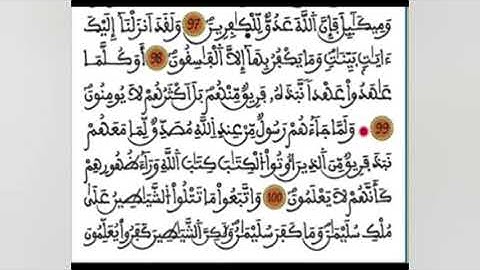 وَمِيكَآئِلَ فَإِنَّ اَ۬للَّهَ عَدُوٌّ لِّلْكٰفِرِينَ 97 وَلَقَدَ اَنزَلْنَآ إِلَيْكَ
ءَايَٰتِۢ بَيِّنَٰتٍ وَمَا يَكْفُرُ بِهَآ إِلَّا اَ۬لْفَٰسِقُونَ 98 أَوَكُلَّمَا
عَٰهَدُواْ عَهْداً نَّبَذَهُۥ فَرِيقٌ مِّنْهُم بَلَ اَكْثَرُهُمْ لَا يُومِنُونَ
99 وَلَمَّا جَآءَهُمْ رَسُولٌ مِّنْ عِندِ اِ۬للَّهِ مُصَدِّقٌ لِّمَا مَعَهُمْ
نَبَذَ فَرِيقٌ مِّنَ اَ۬لذِينَ أُوتُواْ اُ۬لْكِتَٰبَ كِتَٰبَ اَ۬للَّهِ وَرَآءَ ظُهُورِهِمْ
كَأَنَّهُمْ لَا يَعْلَمُونَ 100 وَاتَّبَعُواْ مَا تَتْلُواْ اُ۬لشَّيَٰطِينُ عَلَىٰ
مُلْكِ سُلَيْمَٰنَ وَمَا كَفَرَ سُلَيْمَٰنُ وَلَٰكِنَّ اَ۬لشَّيَٰطِينَ كَفَرُواْ يُعَلِّمُونَ